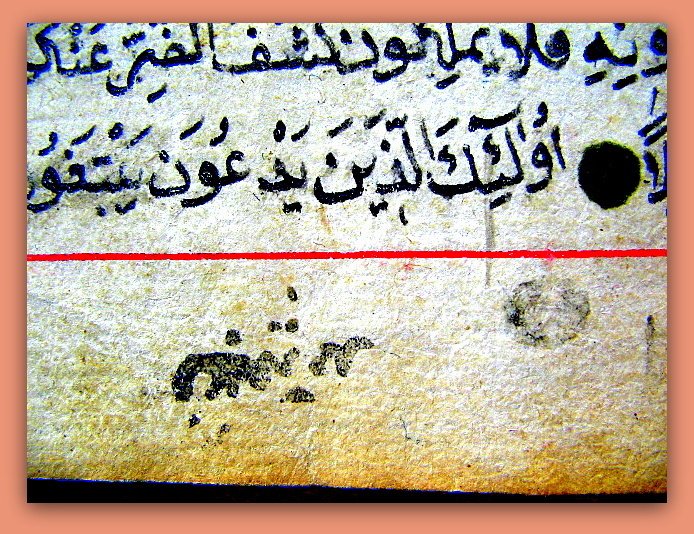 ونِهِ فلا يملِكون كشف الضُّرِّ عَنْكُ
لًا أُولَٰئِكَ الَّذِينَ يَدْعُونَ يَبْتَغُو